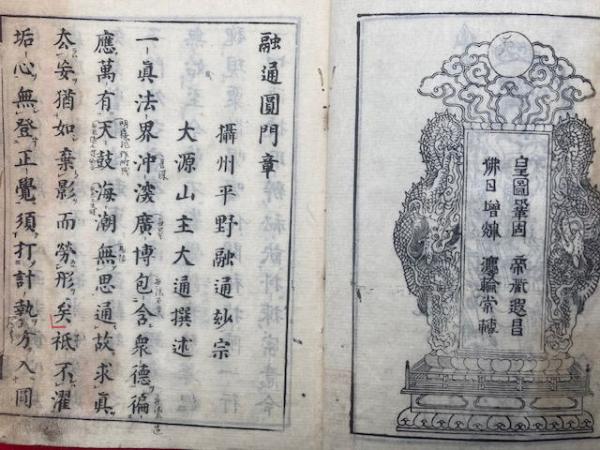 皇圖鞏固 帝祚遐昌
佛日增煇 灋輪常轉
融通圓門章
攝州平野融通玅宗
大源山主大通撰述
一眞法界冲瀜廣博包含衆德徧
應萬有天鼓海潮無思通故求眞
厺妄猶如棄影而勞形矣祇不濯
垢心無登正覺須打計執方入圓